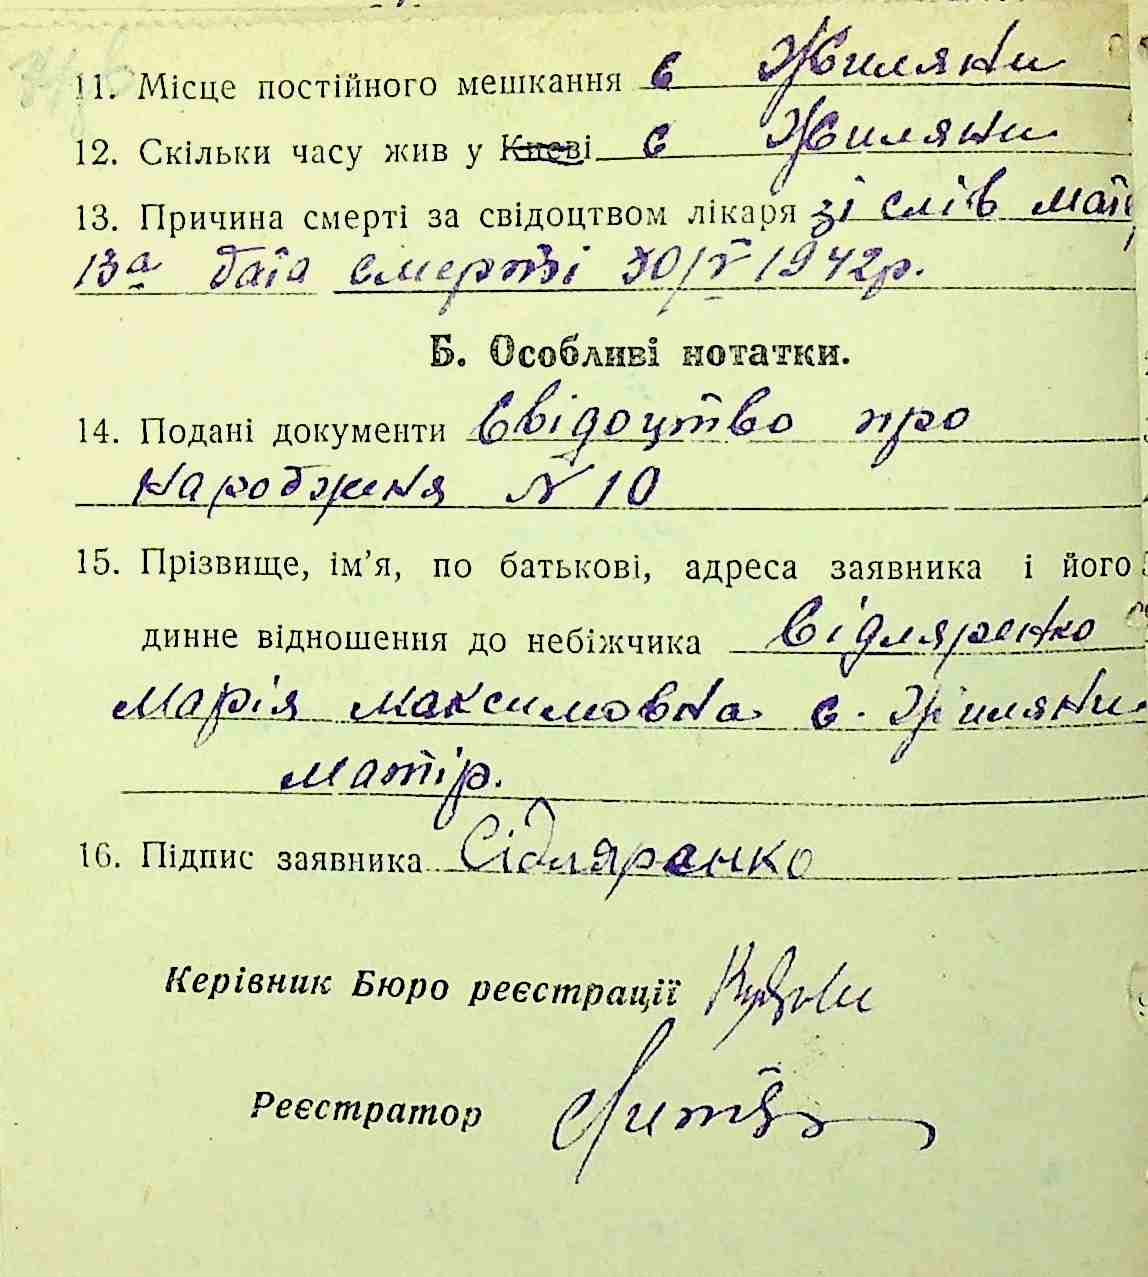 11. Місце постійного мешкання с Жиляни
12. Скільки часу жив у Києві с Жиляни
13. Причина смерті за свідоцтвом лікаря зі слів
13а дата смерті 30/V 1942р.
Б. Особливі нотатки.
14. Подані документи Свідоцтво про
народження N 10
15. Прізвище, ім’я, по батькові, адреса заявника і його
динне відношення до небіжчика Сідляренко
Марія Максимовна с. Жиляни
матір.
16. Підпис заявника Сідляренко
Керівник Бюро реєстрації
Реєстратор